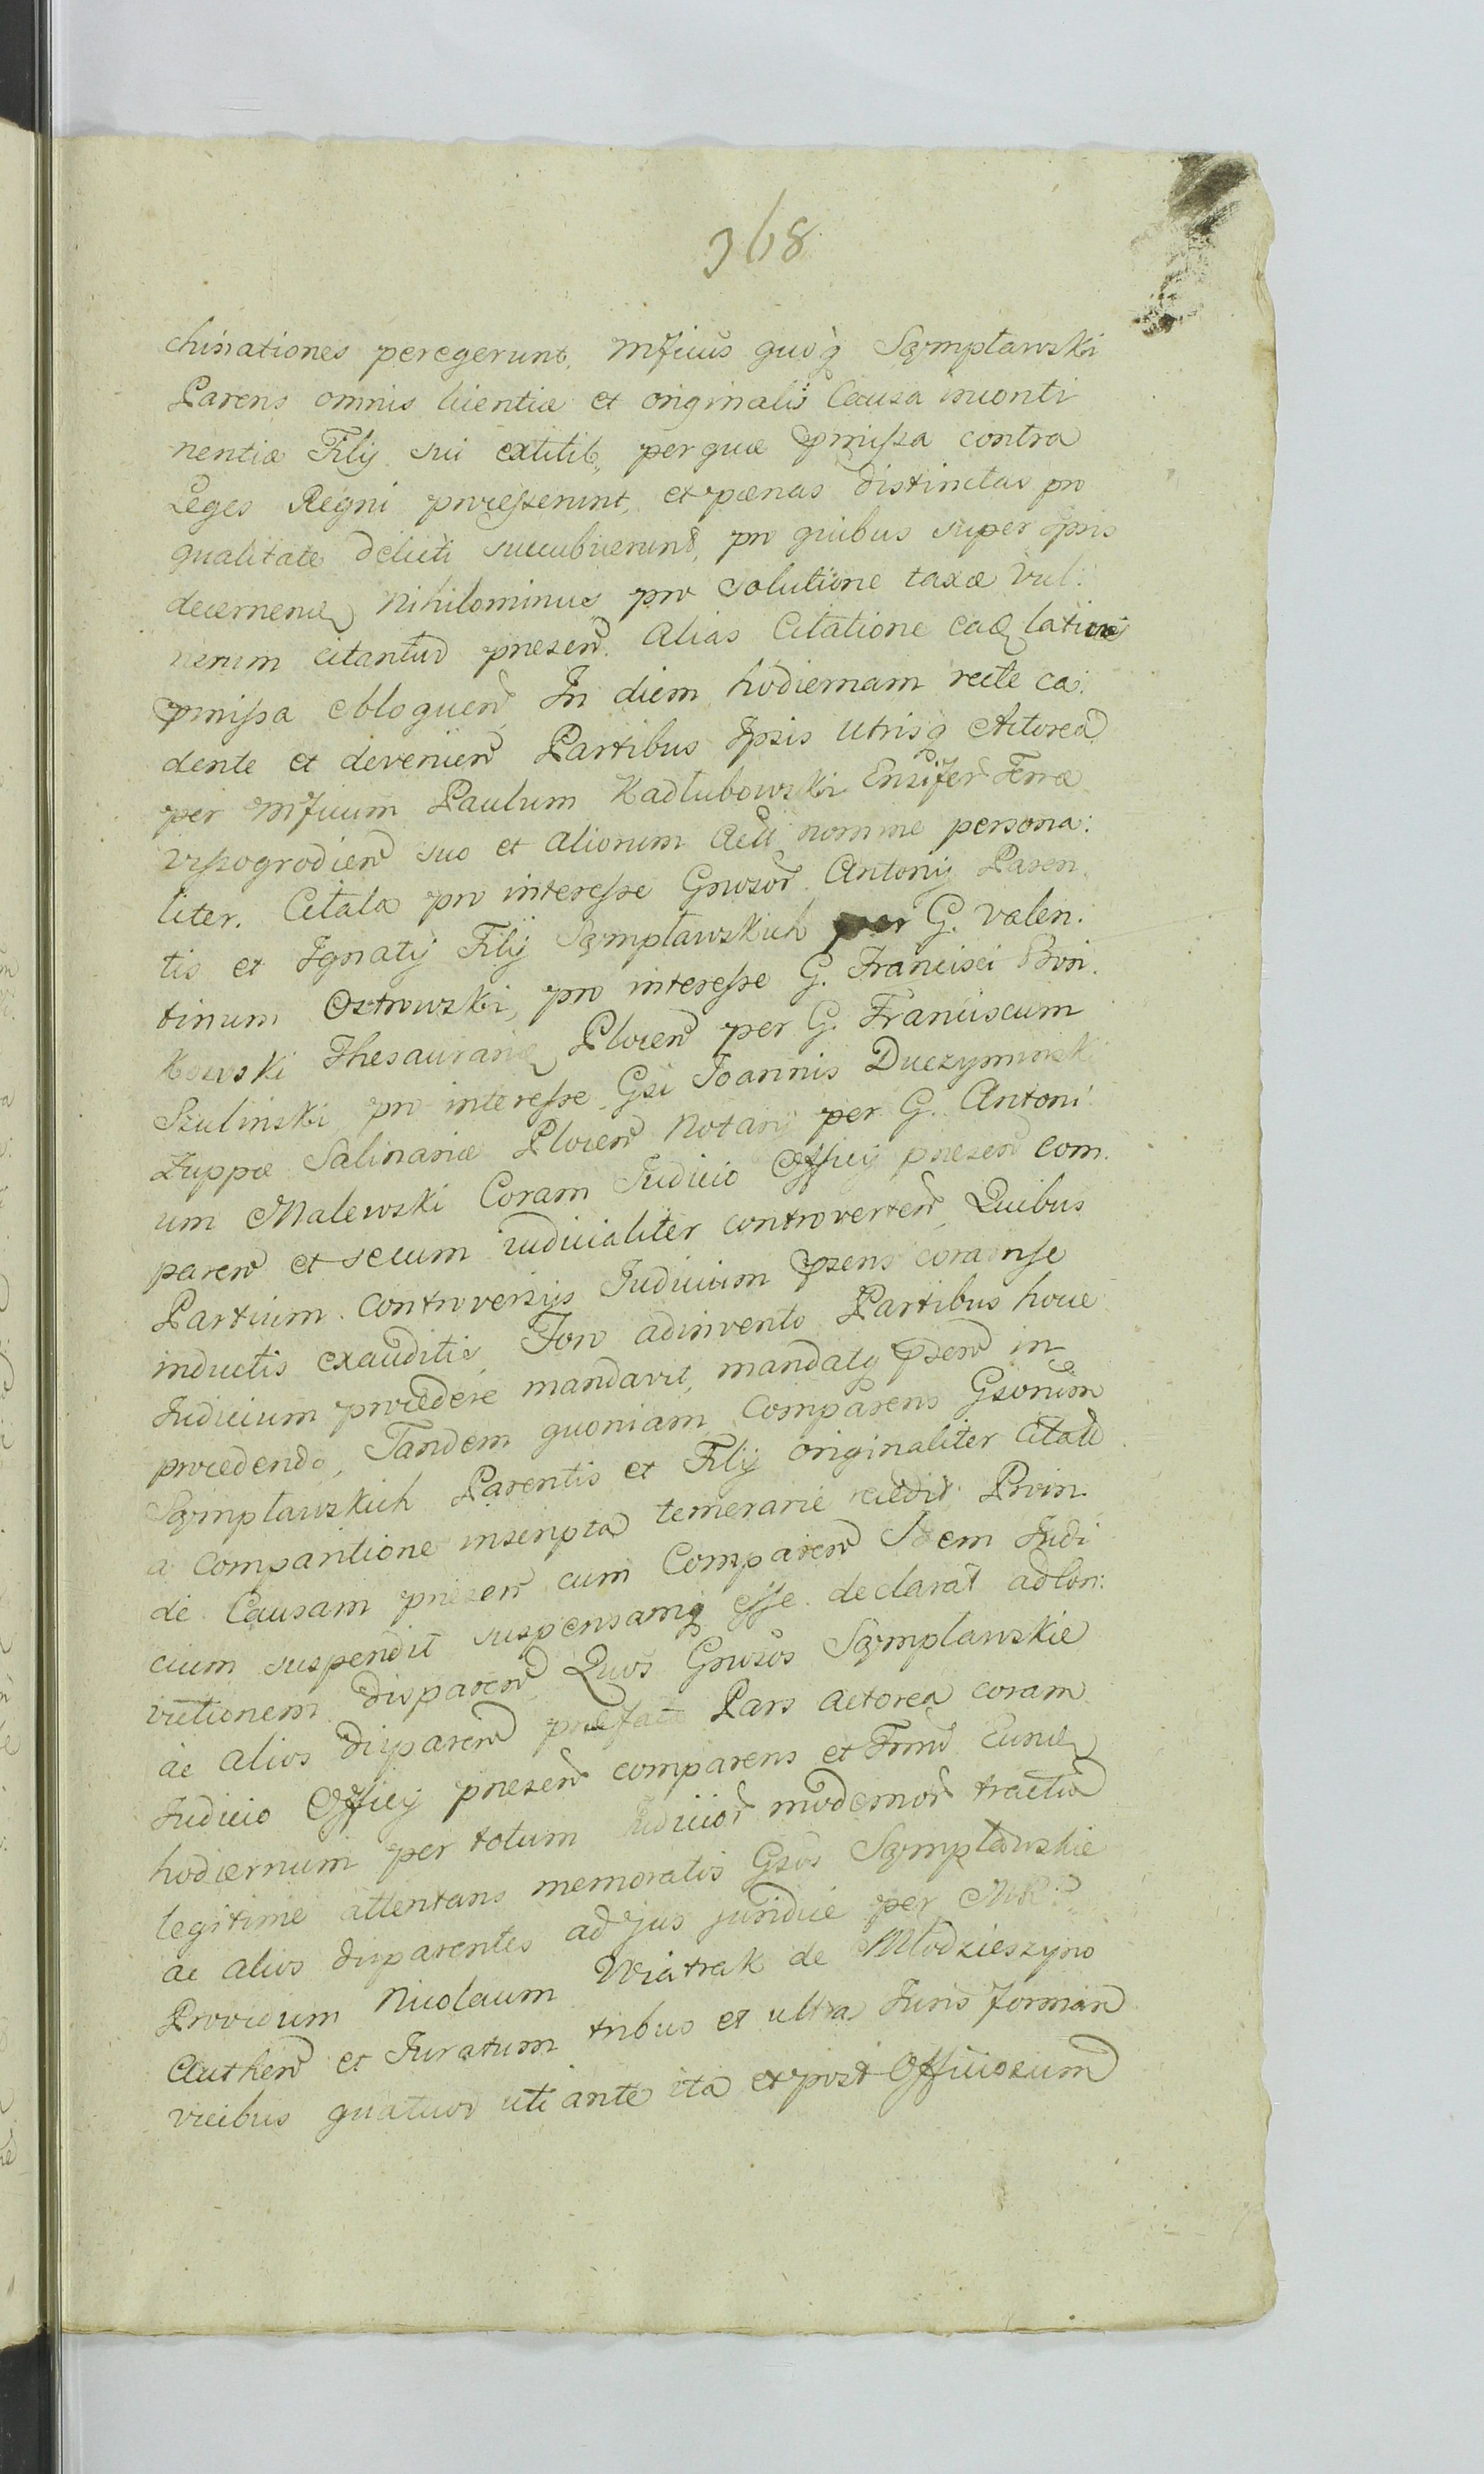 368
chinationes peregerunt, Mficus quoq Sęmpławski
Parens omnis licentiæ et originalis Causa inconti
nentiæ Filij sui extitit, per quæ pmissa contra
Leges Regni processerunt, et pœnas distinctas pro
qualitate delicti succubuerunt, pro quibus super Ipsis
decernen nihilominus pro solutione taxæ Vul:
nerum citantur presen. Alias Citatione eaq latius
pmissa obloquen, In diem hodiernam recte ca:
dente et devenien Partibus Ipsis utrisq Actorea
per Mficum Paulum Kadłubowski Ensifer Terræ
Vissogrodien suo et aliorum Act nomine persona:
liter. Citata pro interesse Gnrosor Antonij Paren
tis et Ignatij Filij Sęmpławskich per G. Valen:
tinum Ostrowski, pro interesse G. Francisci Boń
kowski Thesaurarij Plocen per G. Franciscum
Szuliński pro interesse Gsi Joannis Duczyminski
Zuppæ Salinariæ Plocen Notarij per G. Antoni
um Malewski Coram Judicio Officij presen com
paren et secum iudicialiter controverten, Quibus
Partium Controversijs Judicium psens coram se
inductis exauditis, Foro adinvento Partibus hocce
Judicium procedere mandavit, mandatq psen in
procedendo, Tandem quoniam Comparens Gsorum
Sęmpławskich Parentis et Filij originaliter Citat
a comparitione inscripta temerarie recedit Proin
de Causam presen cum Comparen Idem Judi
cium suspendit suspensamq esse declarat ad Con:
victionem disparen, Quos Gnrosos Sęmpławskie
ac alios disparen præfat Pars Actorea coram
Judicio Officij presen comparens et Trmn
hodiernum per totum Judicior modernor tractum
legitime attentans memoratos Gsos Sęmpławskie
ac alios disparentes ad jus juridice per
Providum Nicolaum Wiatrak de Młodzieszyno
Authen et Juratum tribus et ultra Juris formam
vicibus quatuor uti ante ita et post Officiosum